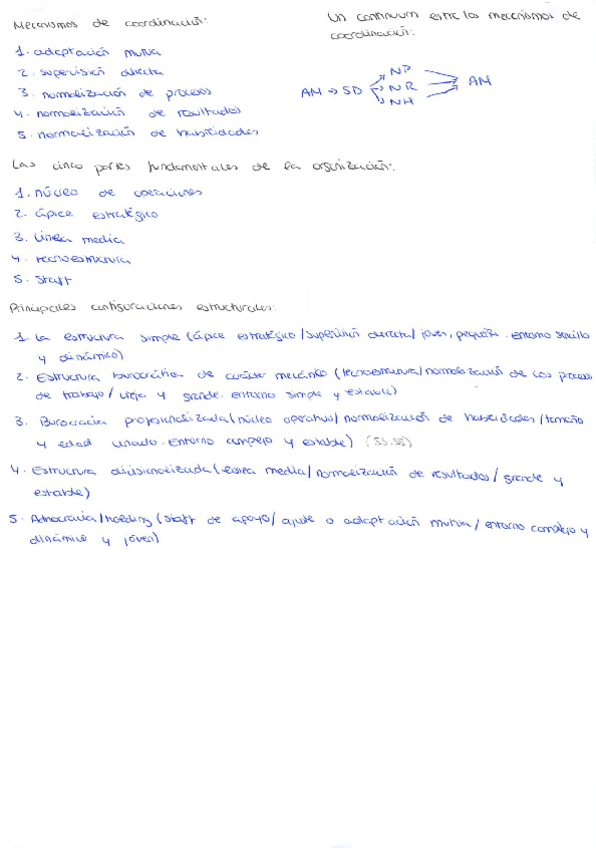 Mecanismos de coordinación:
1. adaptación mutua
2. supervisión directa
3. normalización de procesos
4. normalización de resultados
5. normalización de habilidades
Un continuum entre los mecanismos de
coordinación:
AM → SD → NP → AM
NR
NH
Las cinco partes fundamentales de la organización:
1. núcleo de operaciones
2. ápice estratégico
3. Línea media
4. tecnoestructura
5. Staff
Principales configuraciones estructurales:
1. La estructura simple (ápice estratégico/supervisión directa/ joven, pequeña. entorno sencillo
y dinámico)
2. Estructura burocrática de carácter mecánico (tecnoestructura/normalización de los procesos
de trabajo/ vieja y grande. entorno simple y estable)
3. Burocracia profesionalizada (núcleo operativo/ normalización de habilidades /tamaño
y edad variado. entorno complejo y estable) (SS.SS)
4. Estructura divisionalizada (línea media/ normalización de resultados/ grande y
estable)
5. Adhocracia/holding (staff de apoyo/ ajuste o adaptación mutua/ entorno complejo y
dinámico y joven)